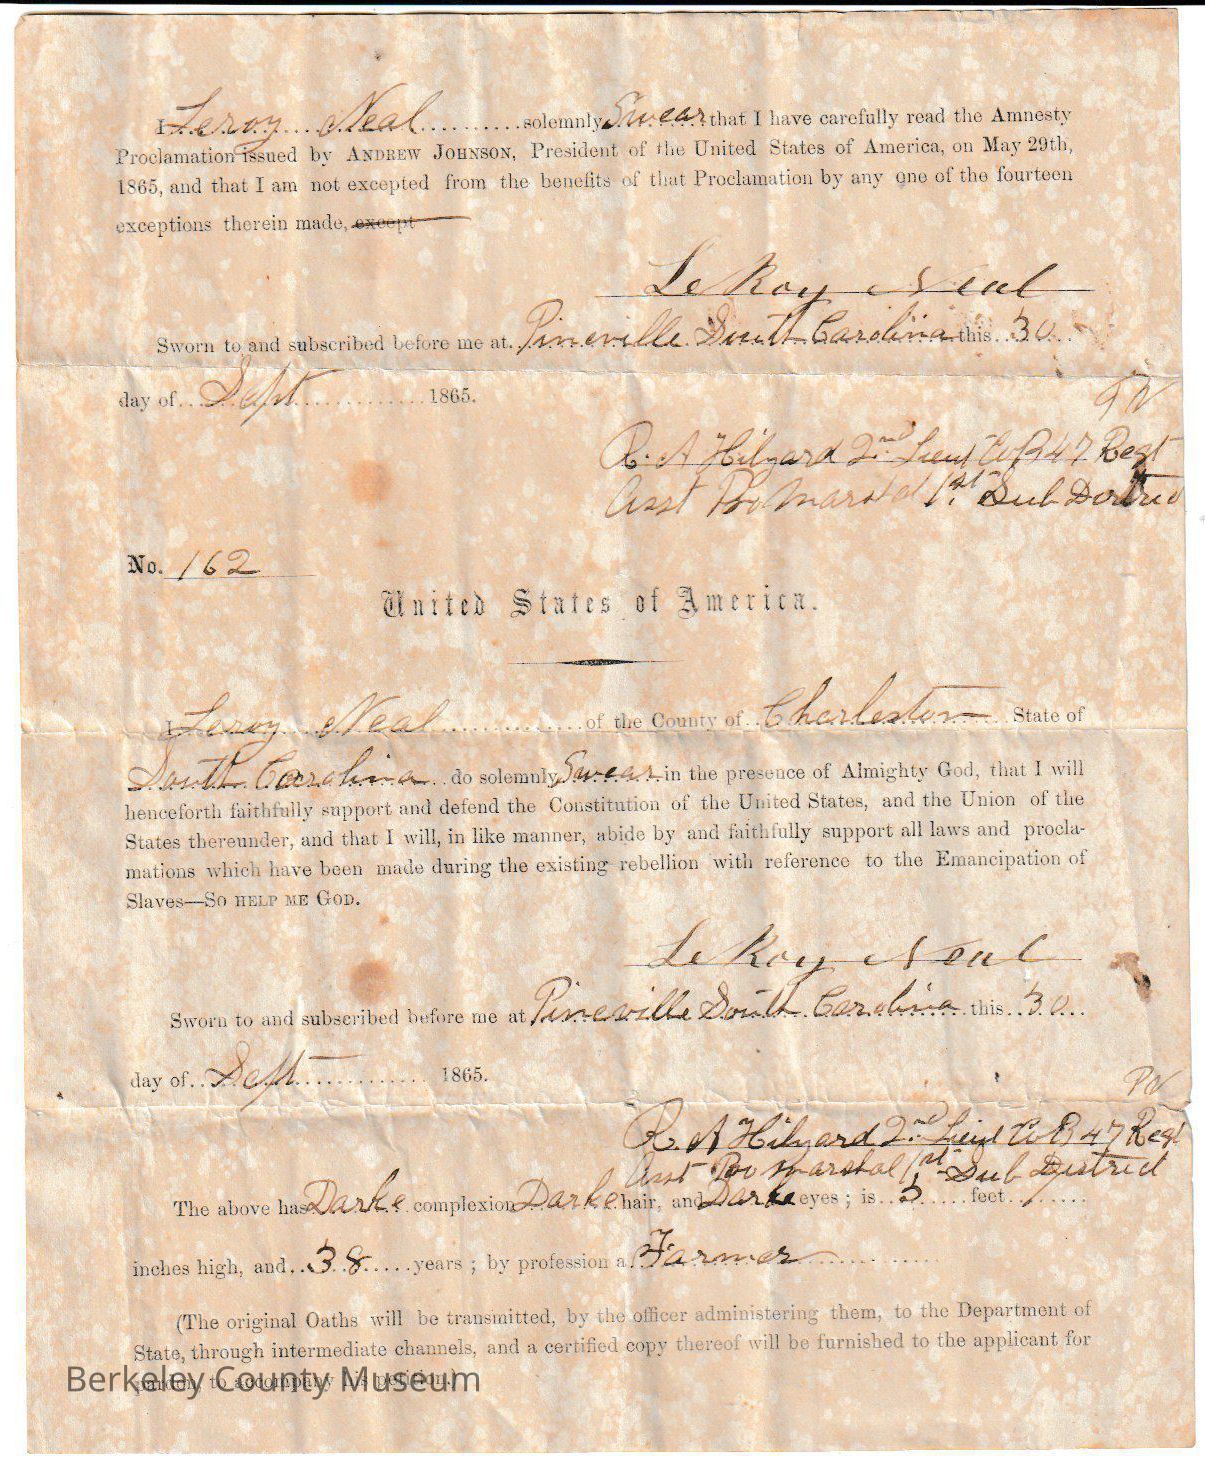 I Leroy Neal solemnly Swear that I have carefully read the Amnesty
Proclamation issued by ANDREW JOHNSON, President of the United States of America, on May 29th,
1865, and that I am not excepted from the benefits of that Proclamation by any one of the fourteen
exceptions therein made, except
LeRoy Neal
Sworn to and subscribed before me at Pineville South Carolina this 30
day of Sept 1865.
R. A Hilyard 2nd Lieut Co B 47 Regt
Asst Pro Marshal 1st Sub District
No. 162
United States of America.
I Leroy Neal of the County of Charleston State of
South Carolina do solemnly Swear in the presence of Almighty God, that I will
henceforth faithfully support and defend the Constitution of the United States, and the Union of the
States thereunder, and that I will, in like manner, abide by and faithfully support all laws and procla-
mations which have been made during the existing rebellion with reference to the Emancipation of
Slaves—SO HELP ME GOD.
LeRoy Neal
Sworn to and subscribed before me at Pineville South Carolina this 30
day of Sept 1865.
R. A Hilyard 2nd Lieut Co B 47 Regt
Asst Pro Marshal 1st Sub District
The above has Darke complexion Darke hair, and Darke eyes ; is 5 feet
inches high, and 38 years ; by profession a Farmer
(The original Oaths will be transmitted, by the officer administering them, to the Department of
State, through intermediate channels, and a certified copy thereof will be furnished to the applicant for
pardon, to accompany his petition.)
Berkeley County Museum